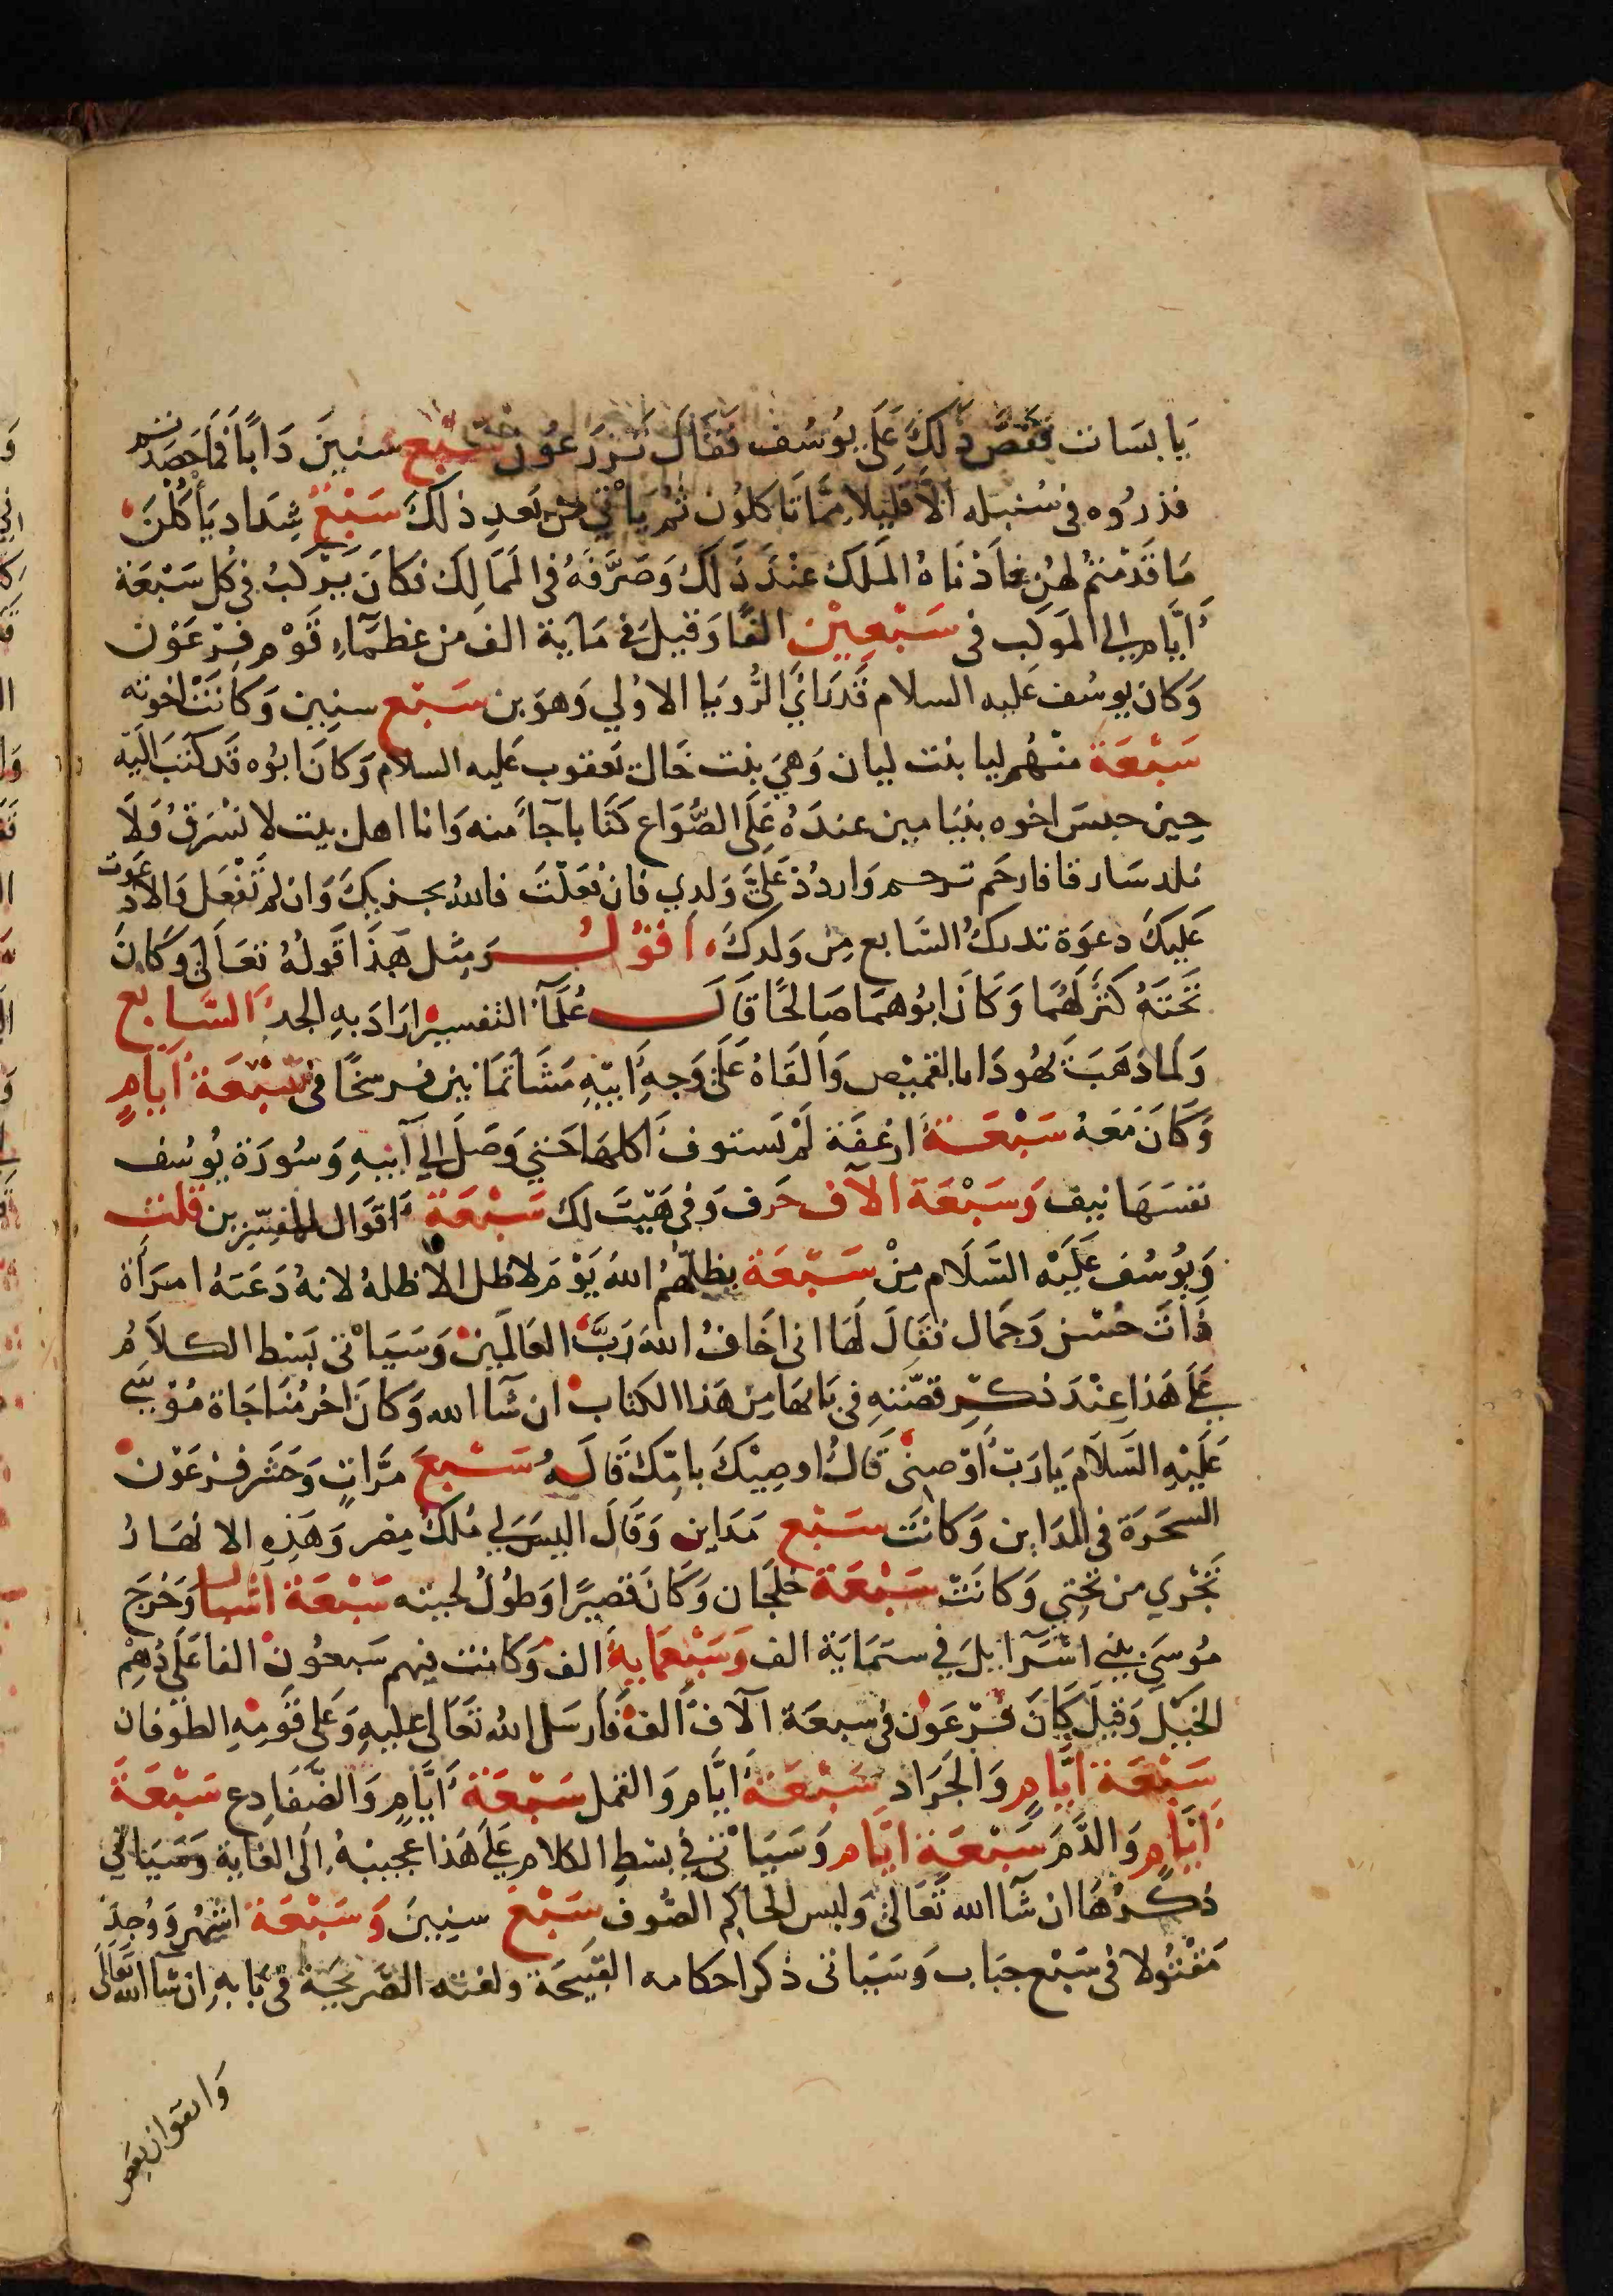 يابسات فقص ذلك على يوسف فقال تزرعون سبع سنين دابا فما حصدتم
فذروه في سنبله الا قليلا مما تاكلون ثم ياتي من بعد ذلك سبع شداد ياكلن
ما قدمتم لهن فادناه الملك عند ذلك وصرفه في الممالك فكان يركب في كل سبعة
ايام الى الموكب في سبعين الفا وقيل في ماية الف من عظماء قوم فرعون
وكان يوسف عليه السلام قد راى الرويا الاولي وهو بن سبع سنين وكانت اخوته
سبعة منهم ليا بنت ليان وهي بنت خال يعقوب عليه السلام وكان ابوه قد كتب اليه
حين حبس اخوه بنيامين عنده على الصواع كتابا جا منه وانا اهل بيت لا نسرق ولا
نلد سارقا فارحم ترحم واردد على ولدي فان فعلت فالله يجزيك وان لم تفعل والا دعوت
عليك دعوة تدرك السابع من ولدك، اقول ومثل هذا قوله تعالى وكان
تحته كنز لهما وكان ابوهما صالحا قال علما التفسير اراد به الجد السابع
ولما ذهب يهوذا بالقميص والقاه على وجه ابيه مشا ثمانين فرسخا في سبعة ايام
وكان معه سبعة ارغفة لم يستوف اكلها حتي وصل الي ابيه وسورة يوسف
نفسها نيف وسبعة الاف حرف وفي هيت لك سبعة اقوال للمفسرين قلت
ويوسف عليه السلام من سبعة يظلهم الله يوم لا ظل الا ظله لانه دعته امراة
ذات حسن وجمال فقال لها اني اخاف الله رب العالمين وسياتي بسط الكلام
على هذا عند ذكر قصته في بابها من هذا الكتاب ان شا الله وكان اخر مناجاة موسى
عليه السلام يا رب اوصني قال اوصيك بامك قاله سبع مرات وحشر فرعون
السحرة في المداين وكانت سبع مداين وقال اليس لي ملك مصر وهذه الانهار
تجري من تحتي وكانت سبعة خلجان وكان قصيرا وطول لحيته سبعة اشبار وخرج
موسى ببني اسرآيل في ستماية الف وسبعماية الف وكانت فيهم سبعون الفا على دهم
الخيل وقيل كان فرعون في سبعة آلاف الف فارسل الله تعالى عليه وعلى قومه الطوفان
سبعة ايام والجراد سبعة ايام والقمل سبعة ايام والضفادع سبعة
ايام والدم سبعة ايام وسياتي في بسط الكلام على هذا عجيبة الى الغاية وسياتي
ذكرها ان شا الله تعالى ولبس الحاكم الصوف سبع سنين وسبعة اشهر ووجد
مقتولا في سبع جباب وسياتي ذكر احكامه القبيحة ولغته الصريحية في بابه ان شا الله تعالى